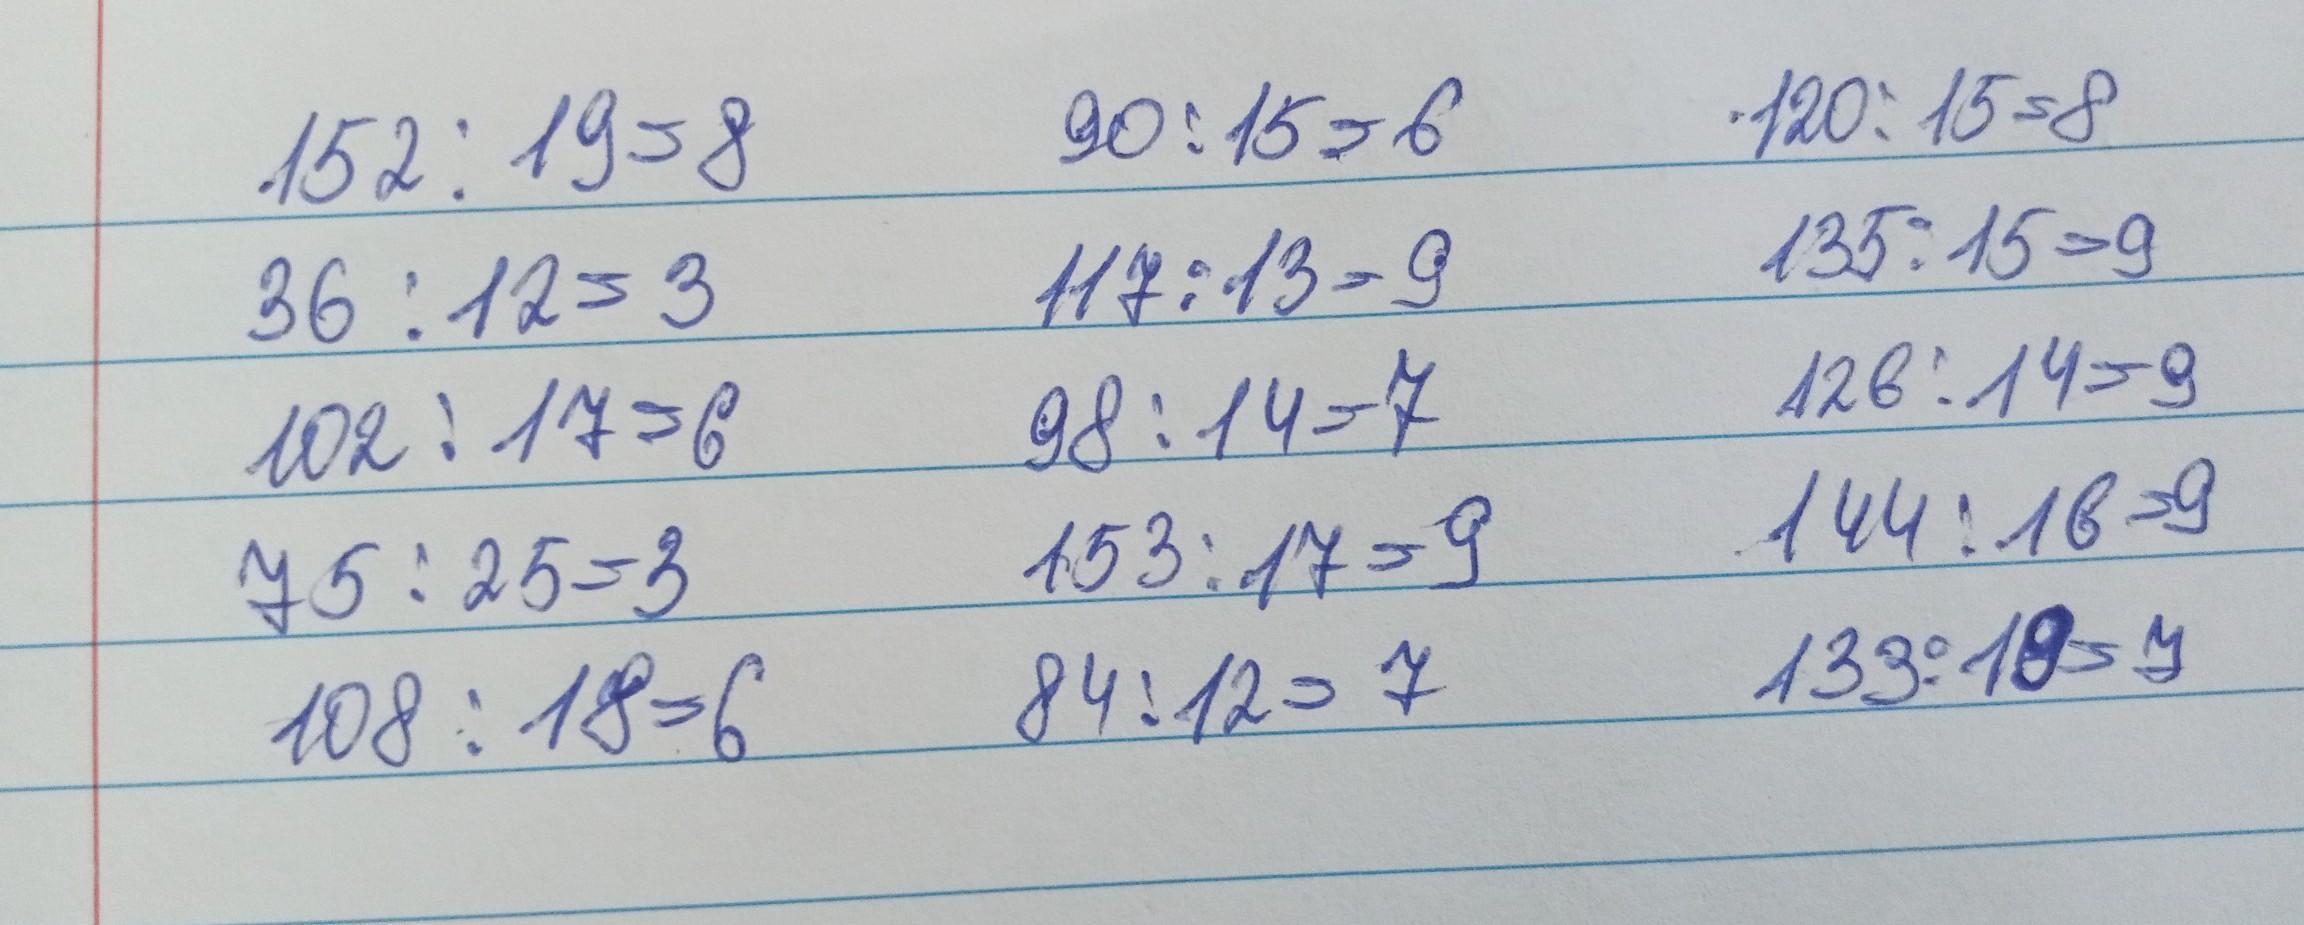 152 : 19 = 8 90 : 15 = 6 120 : 15 = 8
36 : 12 = 3 117 : 13 = 9 135 : 15 = 9
102 : 17 = 6 98 : 14 = 7 126 : 14 = 9
75 : 25 = 3 153 : 17 = 9 144 : 16 = 9
108 : 18 = 6 84 : 12 = 7 133 : 19 = 7